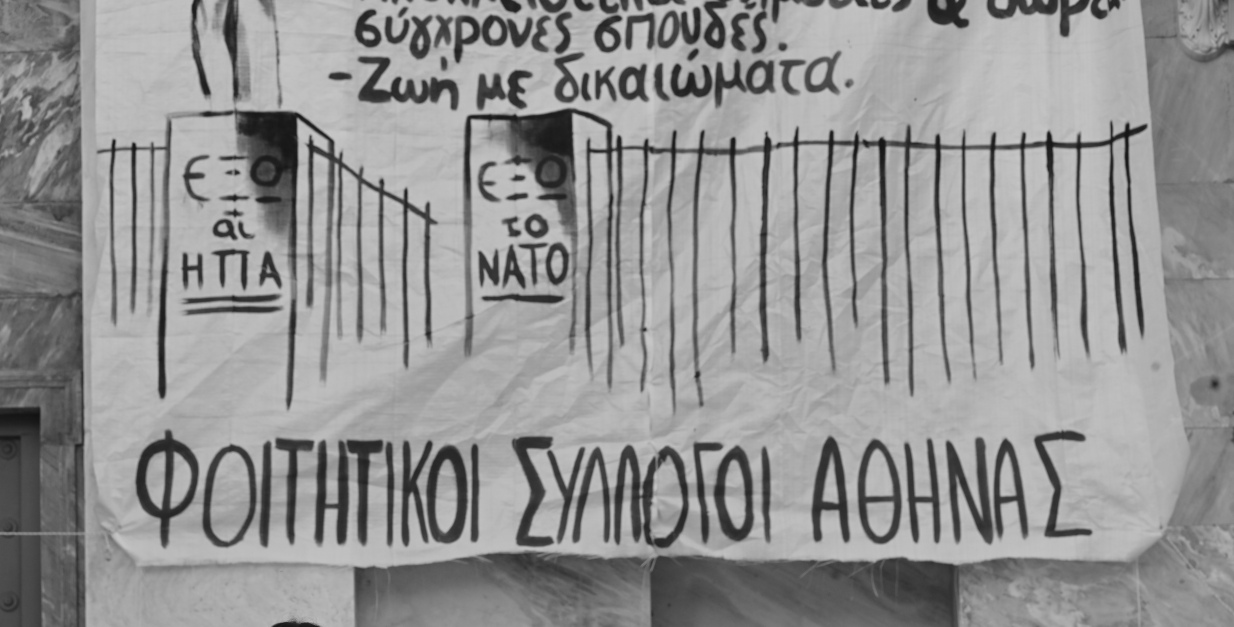 & δωρεάν
σύγχρονες σπουδές.
-Ζωή με δικαιώματα.
ΕΞΩ
οι
ΗΠΑ
ΕΞΩ
το
ΝΑΤΟ
ΦΟΙΤΗΤΙΚΟΙ ΣΥΛΛΟΓΟΙ ΑΘΗΝΑΣ